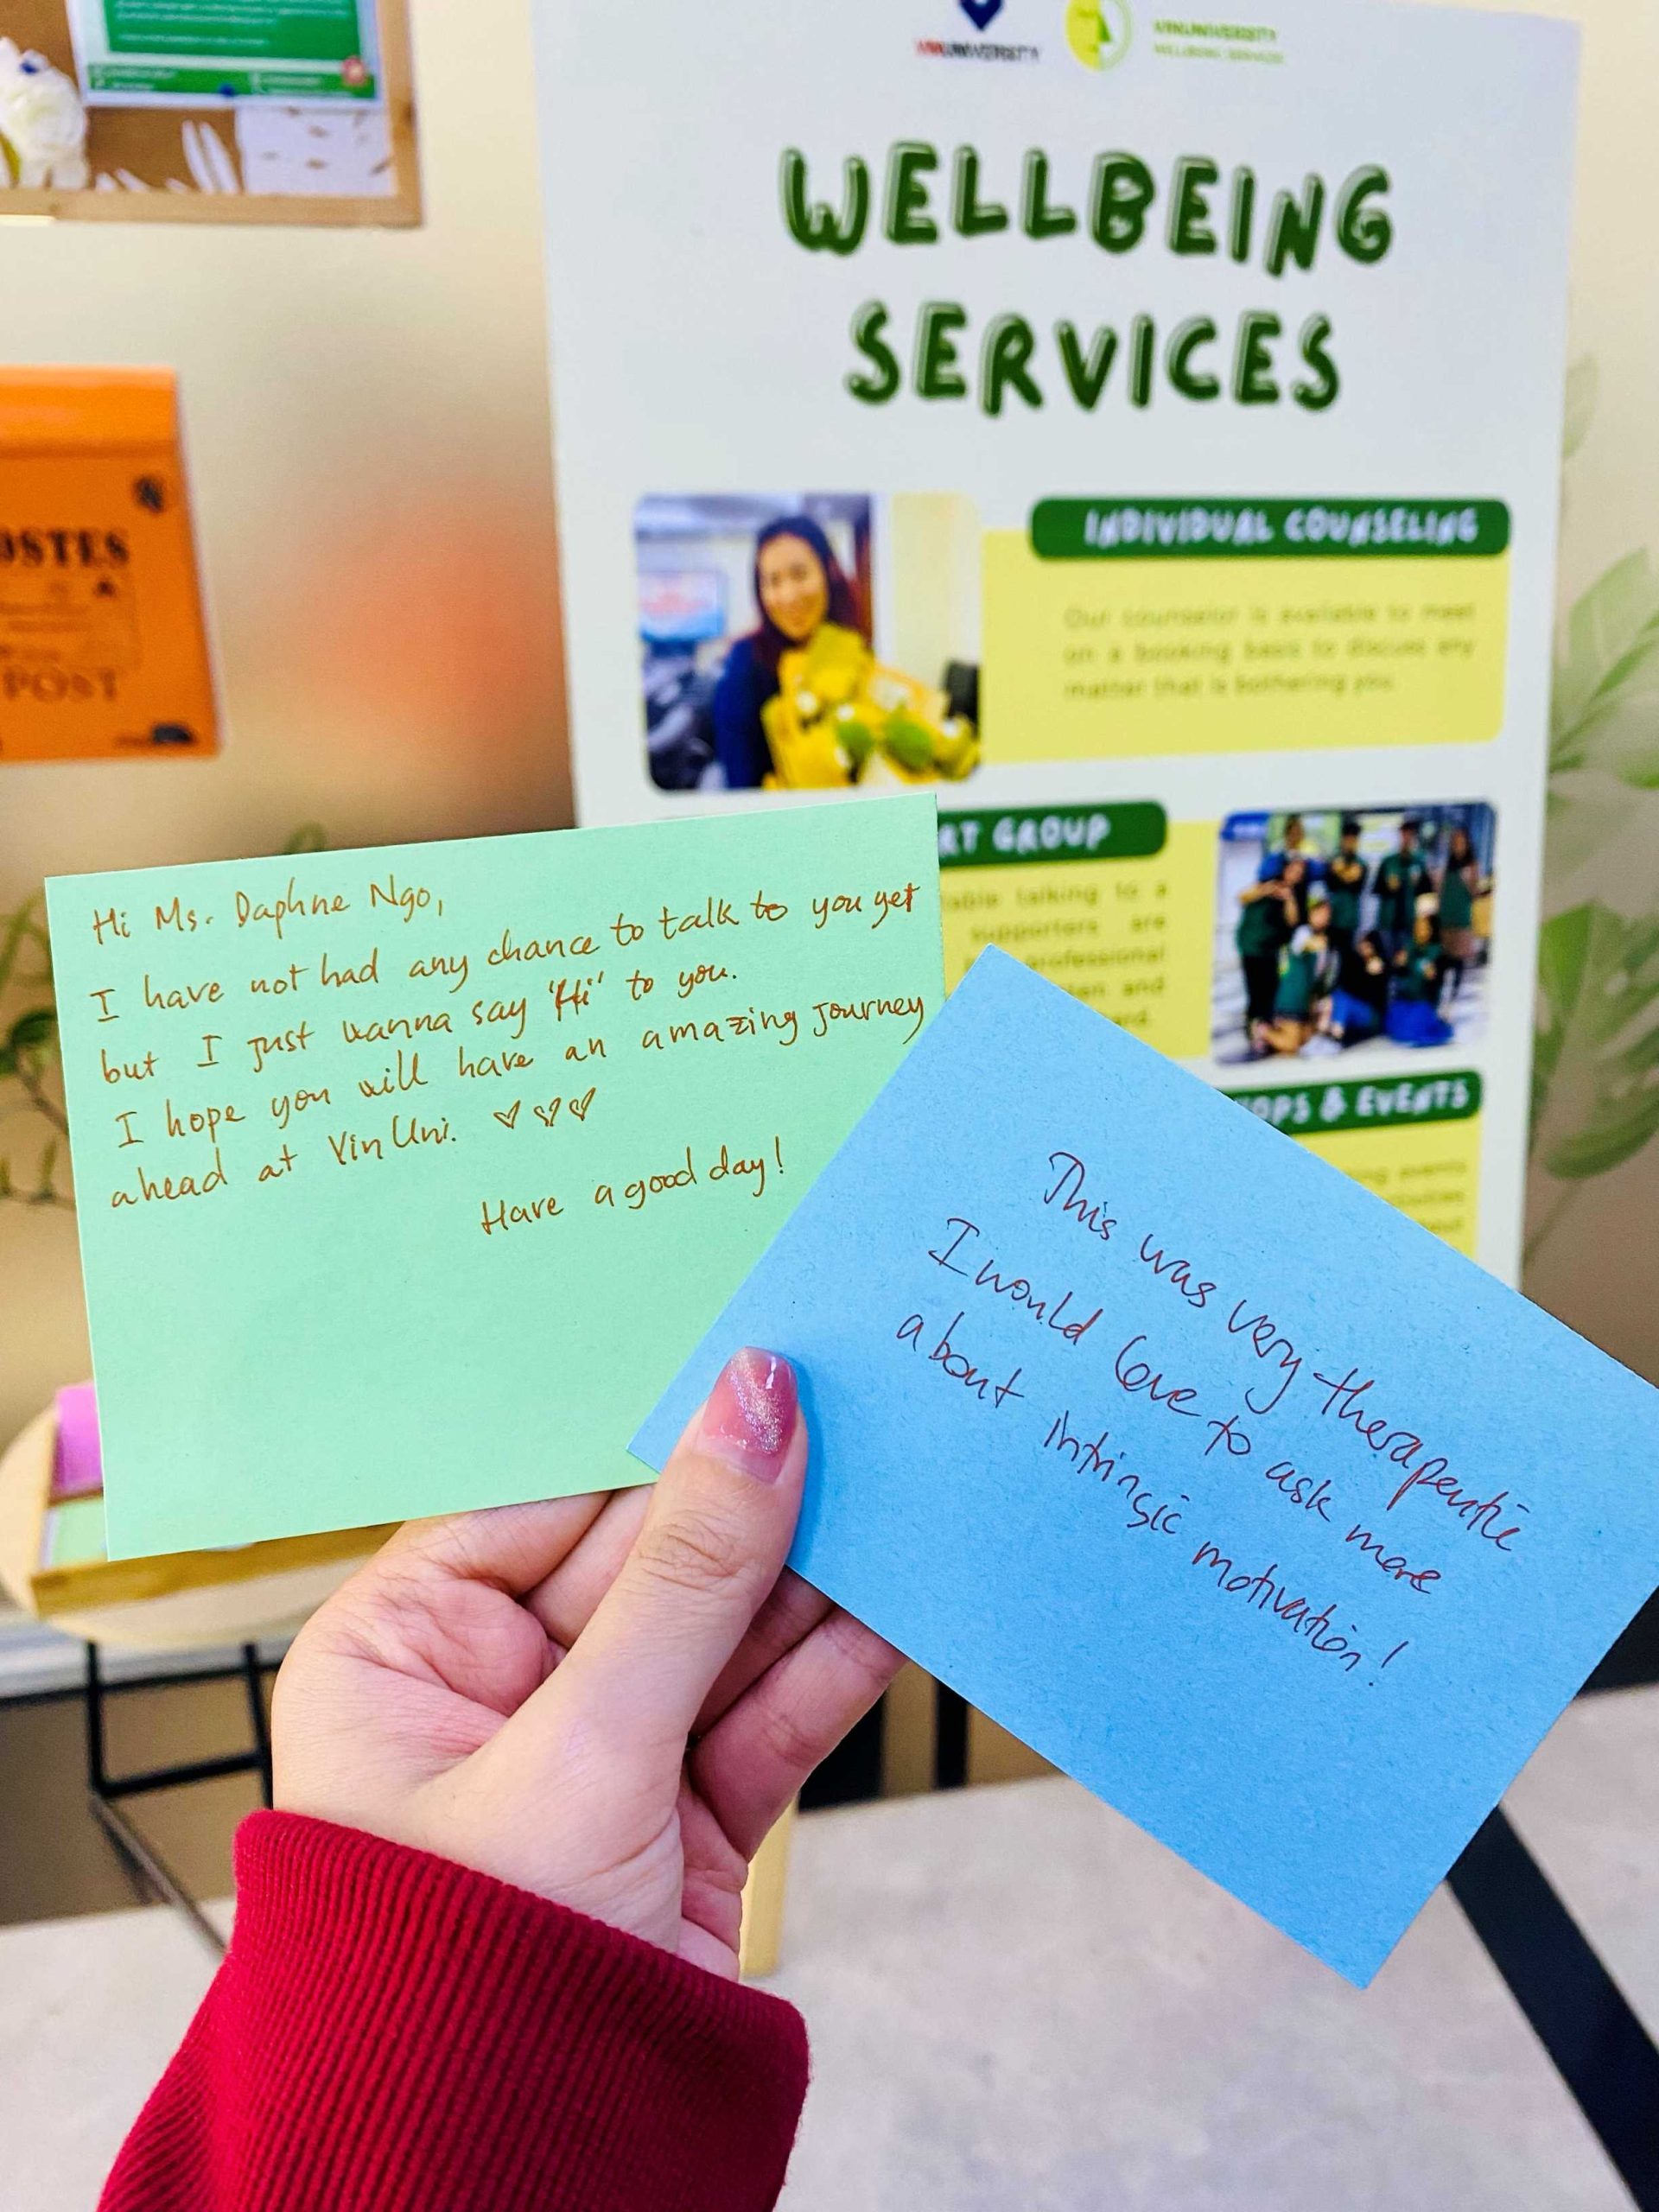 VINUNIVERSITY
VINUNIVERSITY
WELLBEING SERVICES
WELLBEING
SERVICES
INDIVIDUAL COUNSELING
Our counselor is available to meet
on a booking basis to discuss any
matter that is bothering you
OSTES
POST
RT GROUP
able talking to a
supporters are
professional
and
OPS & EVENTS
events
Hi Ms. Daphne Ngo,
I have not had any chance to talk to you yet
but I just wanna say 'Hi' to you.
I hope you will have an amazing journey
ahead at VinUni. ♡♡♡
Have a good day!
This was very therapeutic
I would love to ask more
about intrinsic motivation!